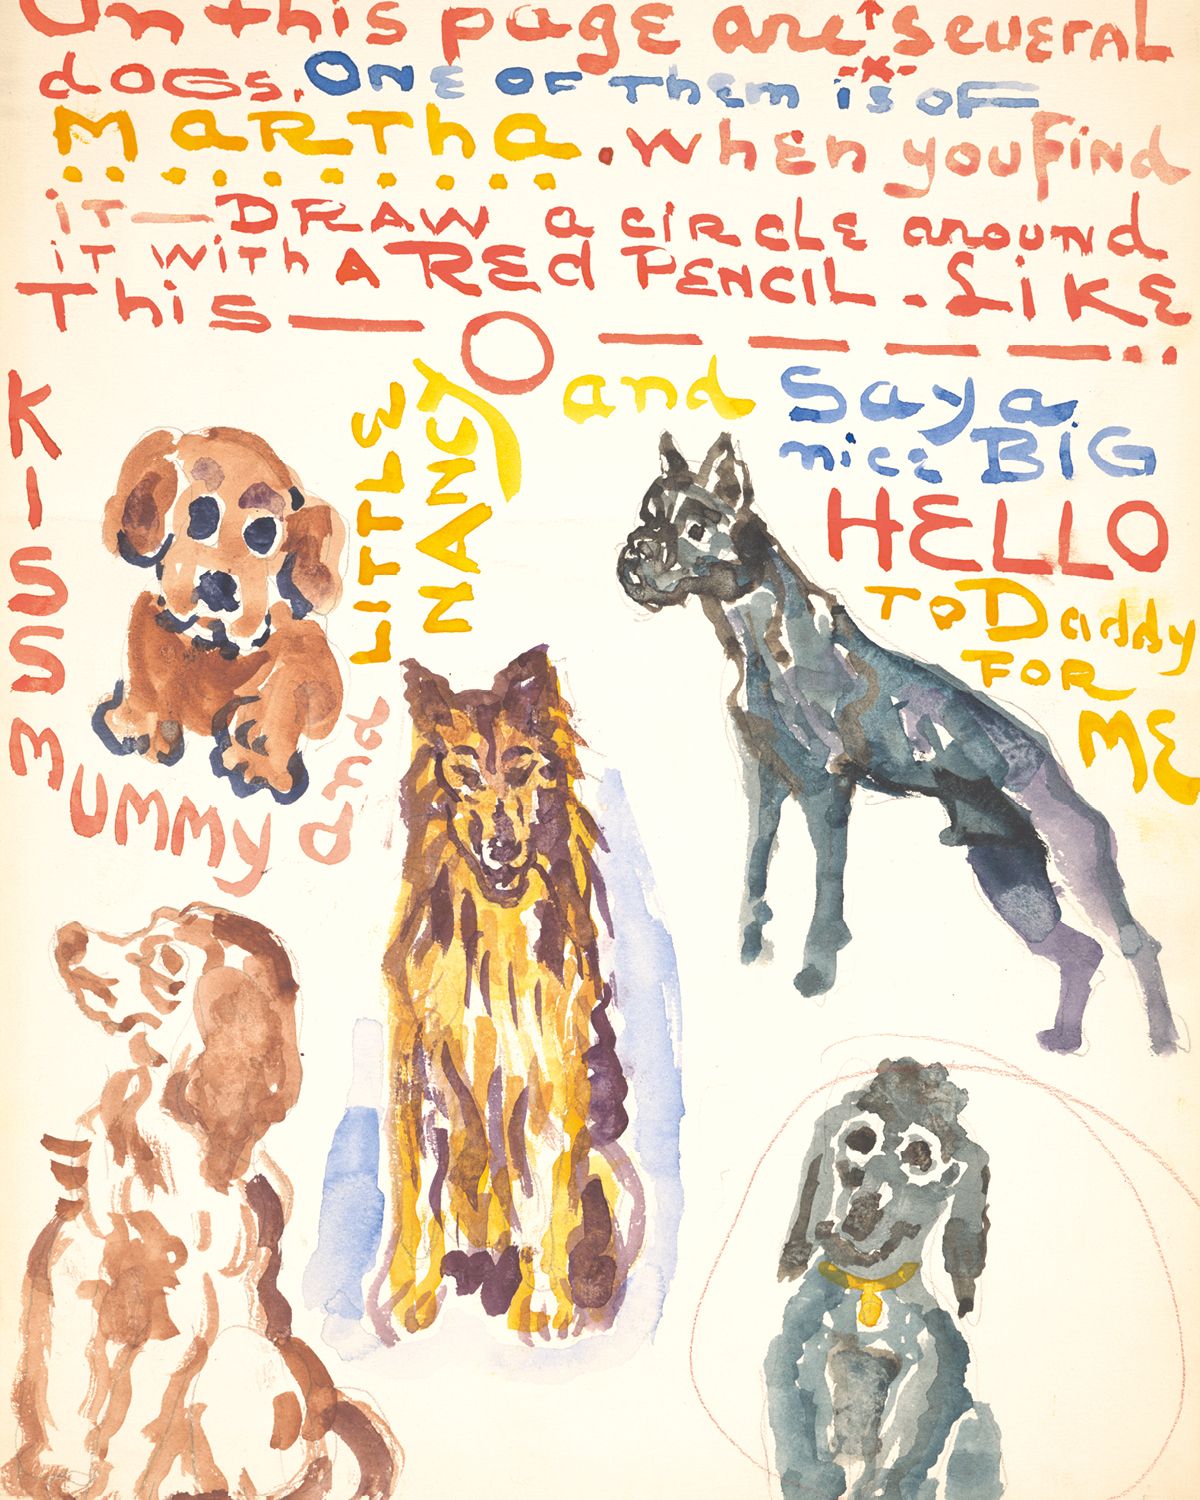 On this page are several
dogs. One of them is of
Martha
. When you find
it — DRAW a circle around
it with A Red PENCIL. Like
This — O — — — — . .
and Say a
nice BIG
HELLO
To Daddy
FOR
ME
KISS MUMMY and LITTLE
NANCY